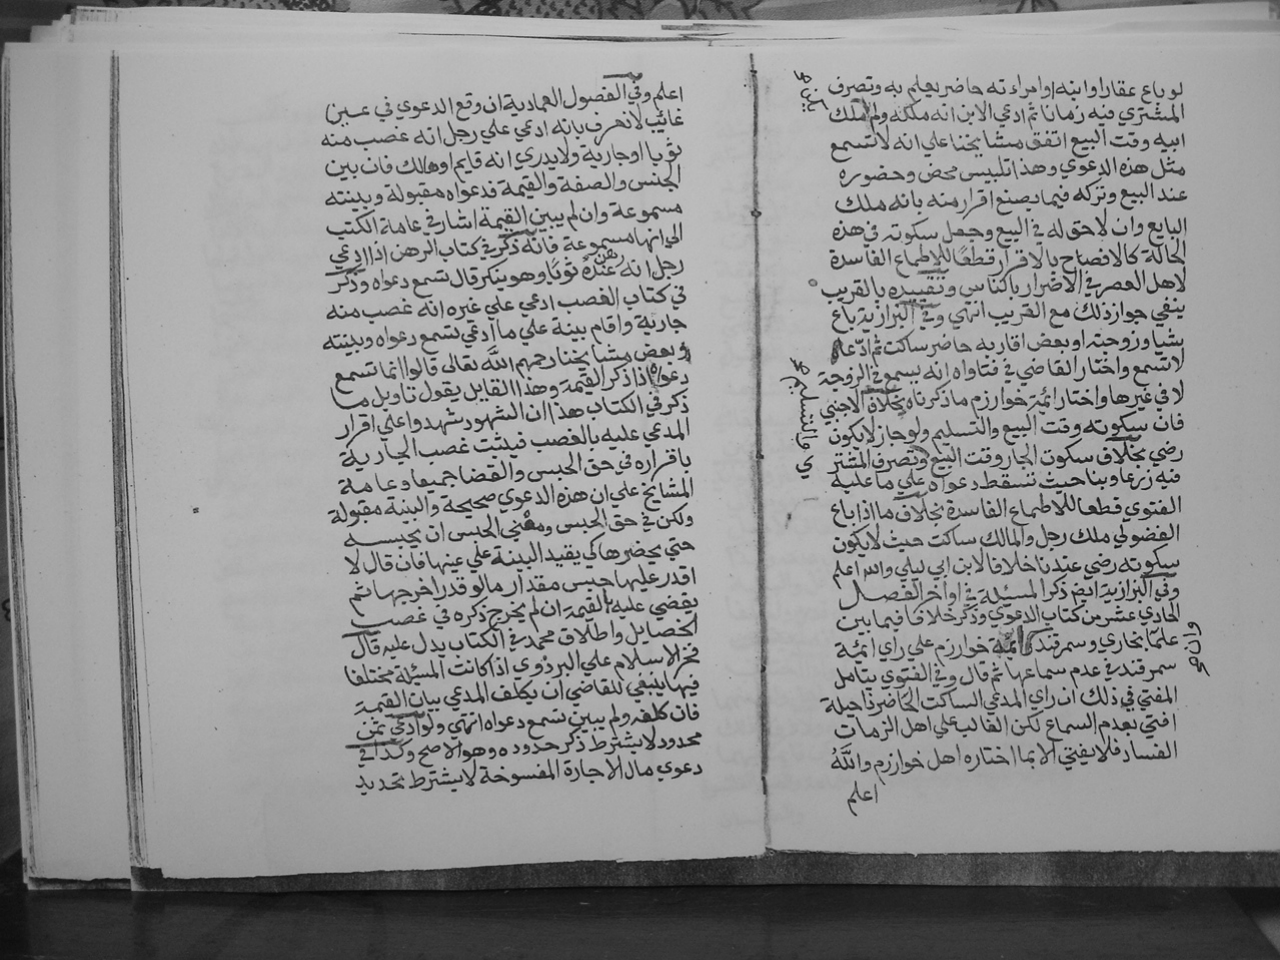 لو باع عقارا وابنه او امراءته حاضر يعلم به وتصرف
المشتري فيه زمانا ثم ادعي الابن انه ملكه ولم ملك
ابيه وقت البيع اتفق مشايخنا علي انه لا تسمع
مثل هذه الدعوي وهذا تلبيس محض وحضوره
عند البيع وتركه فيما يصنع اقرار منه بانه ملك
البايع وان لا حق له في البيع وجعل سكوته في هذه
الحالة كالافصاح بالاقرار قطعا للاطماع الفاسدة
لاهل العصر في الاضرار بالناس وتقييده بالقريب
ينفي جواز ذلك مع القريب انتهي وفي البزازية باع
شيا وزوجته او بعض اقاربه حاضر ساكت ثم ادعاه
لا تسمع واختار القاضي في فتاواه انه يسمع في الزوجة
لا في غيرها واختار ائمة خوارزم ما ذكرناه بخلاف الاجنبي
فان سكوته وقت البيع والتسليم ولو جاز لا يكون
رضي بخلاف سكوت الجار وقت البيع وتصرف المشتر
فيه زرعا وبنا حيث تسقط دعواه علي ما عليه
الفتوي قطعا للاطماع الفاسدة بخلاف ما اذا باع
الفضولي ملك رجل والمالك ساكت حيث لا يكون
سكوته رضي عندنا خلافا لابن ابي ليلي والله اعلم
وفي البزازية ايضا ذكر المسيلة في اواخر الفصل
الحادي عشر من كتاب الدعوي وذكر خلافا فيما بين
علما بخاري وسمرقند ائمة خوارزم علي راي ائمة
سمرقند في عدم سماعها ثم قال وفي الفتوي يتامل
المفتي في ذلك ان راي المدعي الساكت الحاضر ذا حيلة
افتي بعدم السماع لكن الغالب علي اهل الزمان
الفساد فلا يفتي الا بما اختاره اهل خوارزم والله
اعلم
اعلم وفي الفصول العمادية ان وقع الدعوي في عين
غائب لا نعرف بانه ادعي علي رجل انه غصب منه
ثوبا او جارية ولا يدري انه قايم او هالك فان بين
الجنس والصفة والقيمة فدعواه مقبولة وبينته
مسموعة وان لم يبين القيمة اشار في عامة الكتب
الي انها مسموعة فانه ذكر في كتاب الرهن اذا ادعي
رجل انه رهن عنده ثوبا وهو ينكر قال تسمع دعواه وذكر
في كتاب الغصب ادعي علي غيره انه غصب منه
جارية واقام بينة علي ما ادعي تسمع دعواه وبينته
وبعض مشايخنا رحمهم الله تعالي قالوا انما تسمع
دعواه اذا ذكر القيمة وهذا القايل يقول تاويل ما
ذكر في الكتاب هذا ان الشهود شهدوا علي اقرار
المدعي عليه بالغصب فيثبت غصب الجارية
باقراره في حق الحبس والقضا جميعا وعامة
المشايخ علي ان هذه الدعوي صحيحة والبينة مقبولة
ولكن في حق الحبس ومعني الحبس ان يحبسه
حتي يحضرها كي يقيد البينة علي عينها فان قال لا
اقدر عليها حبس مقدار ما لو قدر اخرجها ثم
يقضي عليه بالقيمة ان لم يخرج ذكره في غصب
الخصايل واطلاق محمد في الكتاب يدل عليه قال
فخر الاسلام علي البزدوي اذا كانت المسيلة مختلفا
فيها ينبغي للقاضي ان يكلف المدعي بيان القيمة
فان كلفه ولم يبين تسمع دعواه انتهي ولو ادعي ثمن
محدود لا يشترط ذكر حدوده وهو الاصح وكذا في
دعوي مال الاجارة المفسوخة لا يشترط تحديد